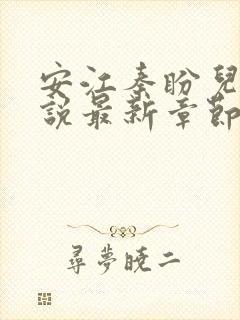 安江秦盼兒
說最新章節
尋夢曉二